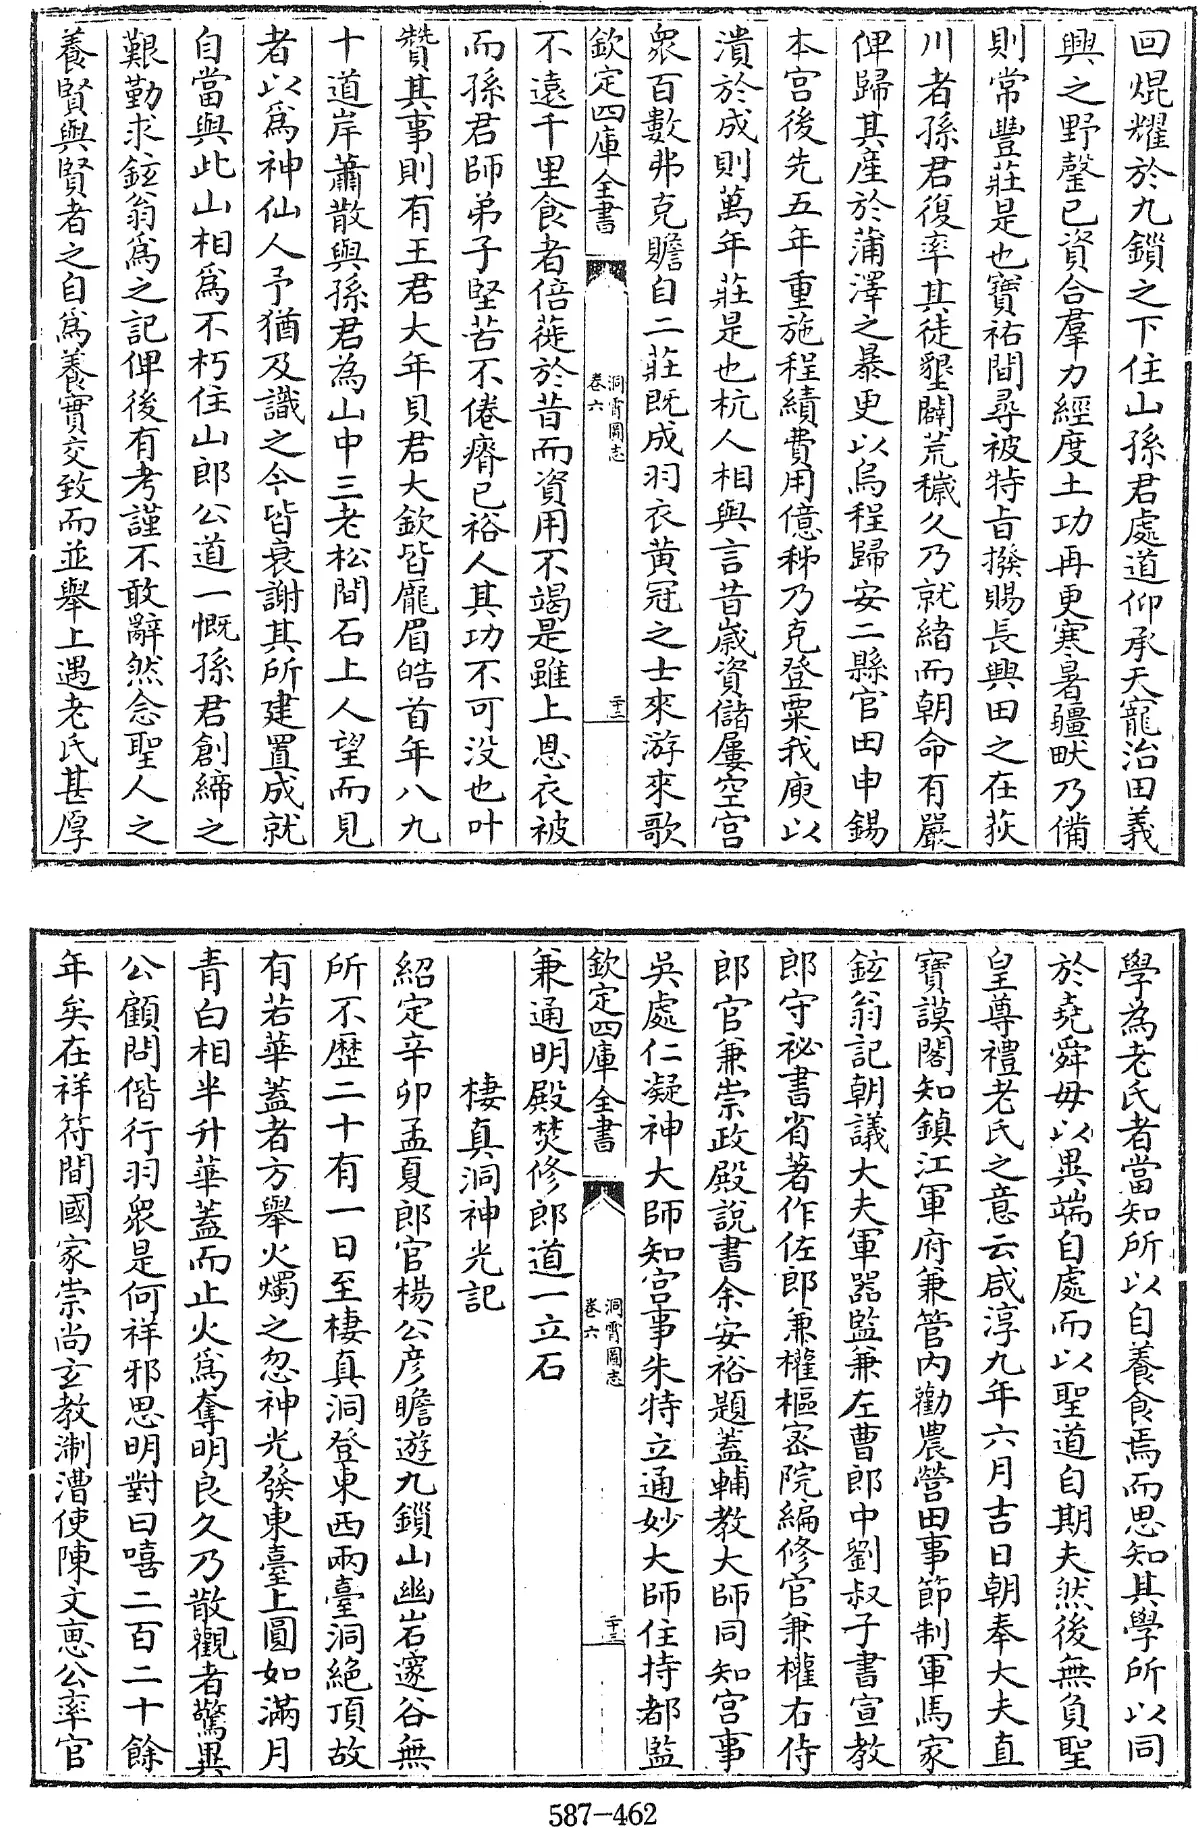 回焜耀於九鎖之下住山孫君處道仰承天寵治田義
興之野罄已資合羣力經度土功再更寒暑疆畎乃備
則常豐莊是也寶祐間尋被特旨撥賜長興田之在荻
川者孫君復率其徒墾闢荒穢久乃就緒而朝命有嚴
俾歸其產於蒲澤之暴更以烏程歸安二縣官田申錫
本宮後先五年重施程績費用億秭乃克登粟我庾以
潰於成則萬年莊是也杭人相與言昔歲資儲屢空宮
衆百數弗克贍自二莊既成羽衣黃冠之士來游來歌
欽定四庫全書
洞霄圖志
卷六
二十二
不遠千里食者倍蓰於昔而資用不竭是雖上恩衣被
而孫君師弟子堅苦不倦瘠已裕人其功不可没也叶
贊其事則有王君大年貝君大欽皆龐眉皓首年八九
十道岸蕭散與孫君為山中三老松間石上人望而見
者以爲神仙人予猶及識之今皆衰謝其所建置成就
自當與此山相爲不朽住山郎公道一慨孫君創締之
艱勤求鉉翁爲之記俾後有考謹不敢辭然念聖人之
養賢與賢者之自爲養實交致而並舉上遇老氏甚厚
學為老氏者當知所以自養食焉而思知其學所以同
於堯舜毋以異端自處而以聖道自期夫然後無負聖
皇尊禮老氏之意云咸淳九年六月吉日朝奉大夫直
寶謨閣知鎮江軍府兼管内勸農營田事節制軍馬家
鉉翁記朝議大夫軍器監兼左曹郎中劉叔子書宣教
郎守祕書省著作佐郎兼權樞密院編修官兼權右侍
郎官兼崇政殿說書余安裕題蓋輔教大師同知宮事
吳處仁凝神大師知宮事朱特立通妙大師住持都監
欽定四庫全書
洞霄圖志
卷六
二十三
兼通明殿焚修郎道一立石
棲真洞神光記
紹定辛卯孟夏郎官楊公彦瞻遊九鎖山幽岩邃谷無
所不歷二十有一日至棲真洞登東西兩臺洞絕頂故
有若華蓋者方舉火燭之忽神光發東臺上圓如滿月
青白相半升華蓋而止火爲奪明良久乃散觀者驚異
公顧問偕行羽衆是何祥邪思明對曰嘻二百二十餘
年矣在祥符間國家崇尚玄教淛漕使陳文惠公率官
587-462